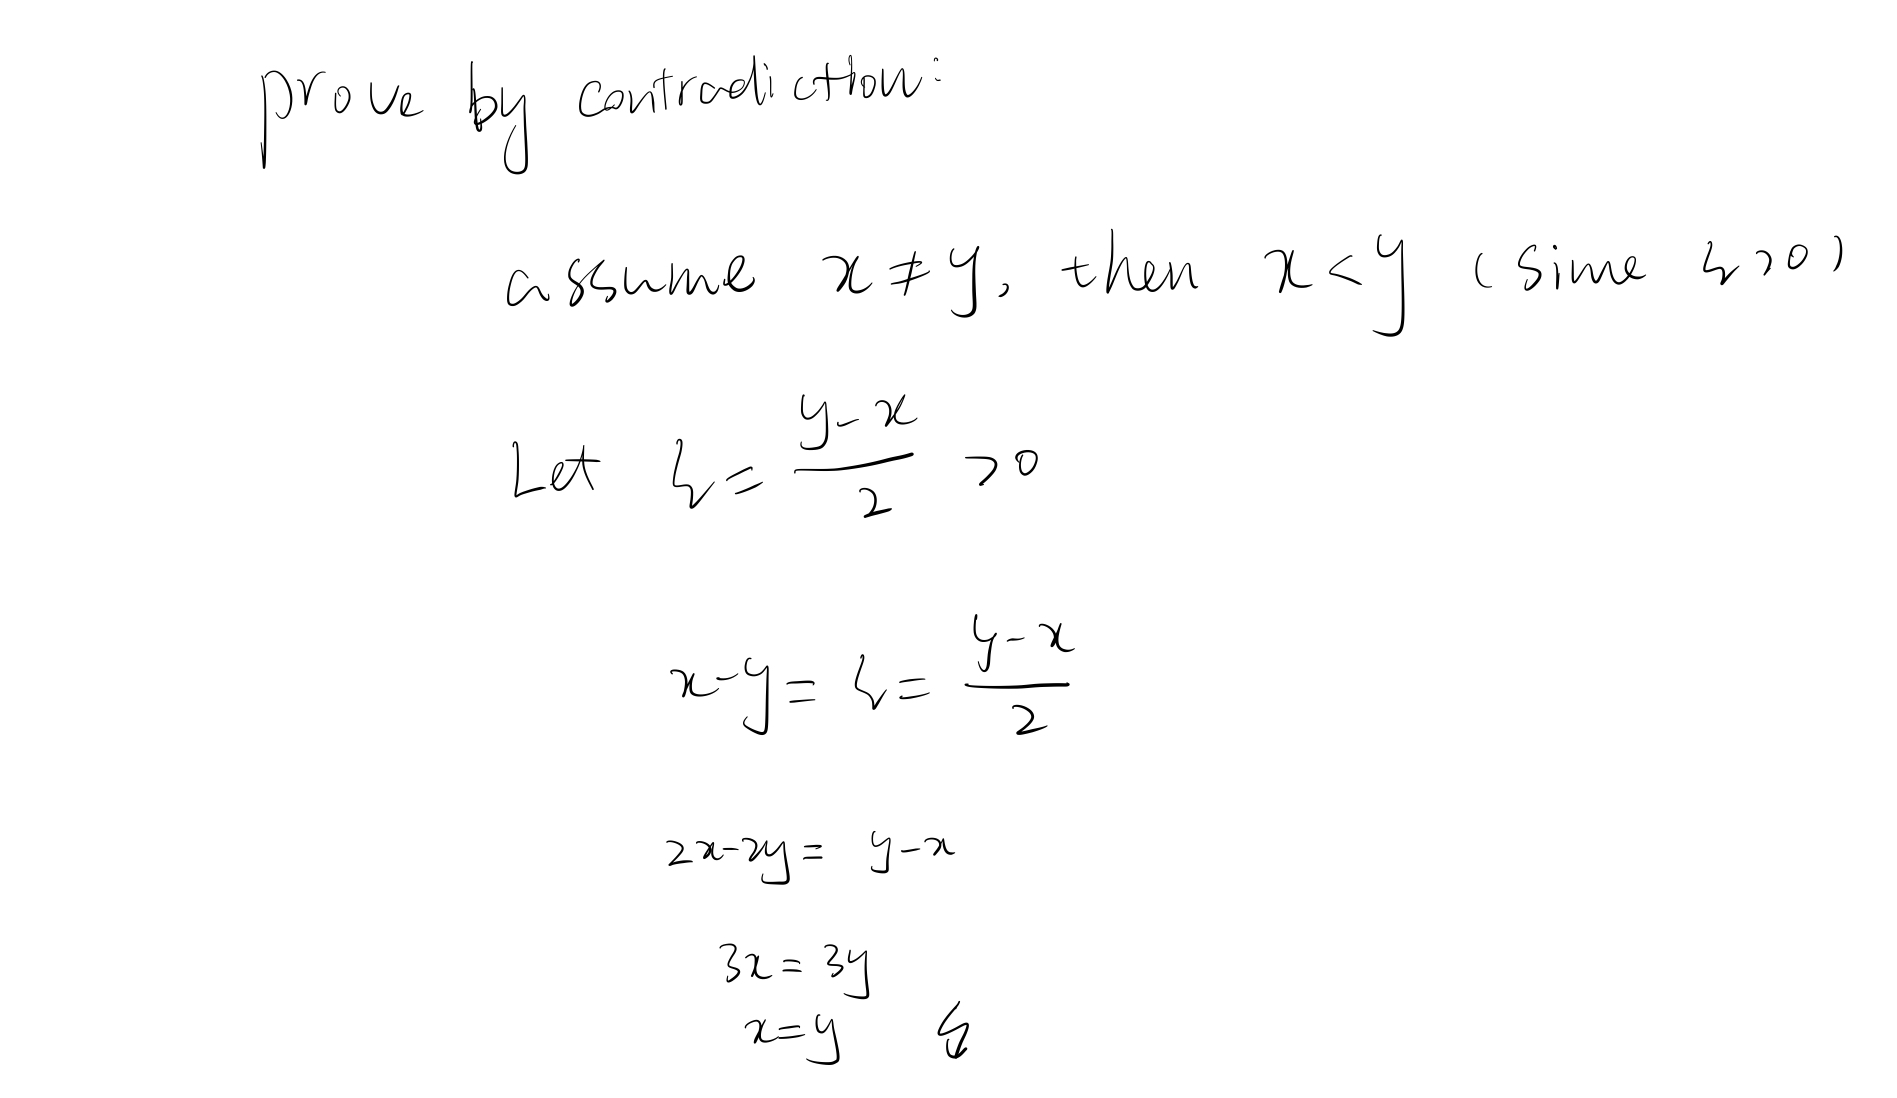 prove by contradiction:
assume x ≠ y, then x < y (since ξ > 0)
Let ξ = \frac{y-x}{2} > 0
x-y = ξ = \frac{y-x}{2}
2x-2y = y-x
3x = 3y
x = y